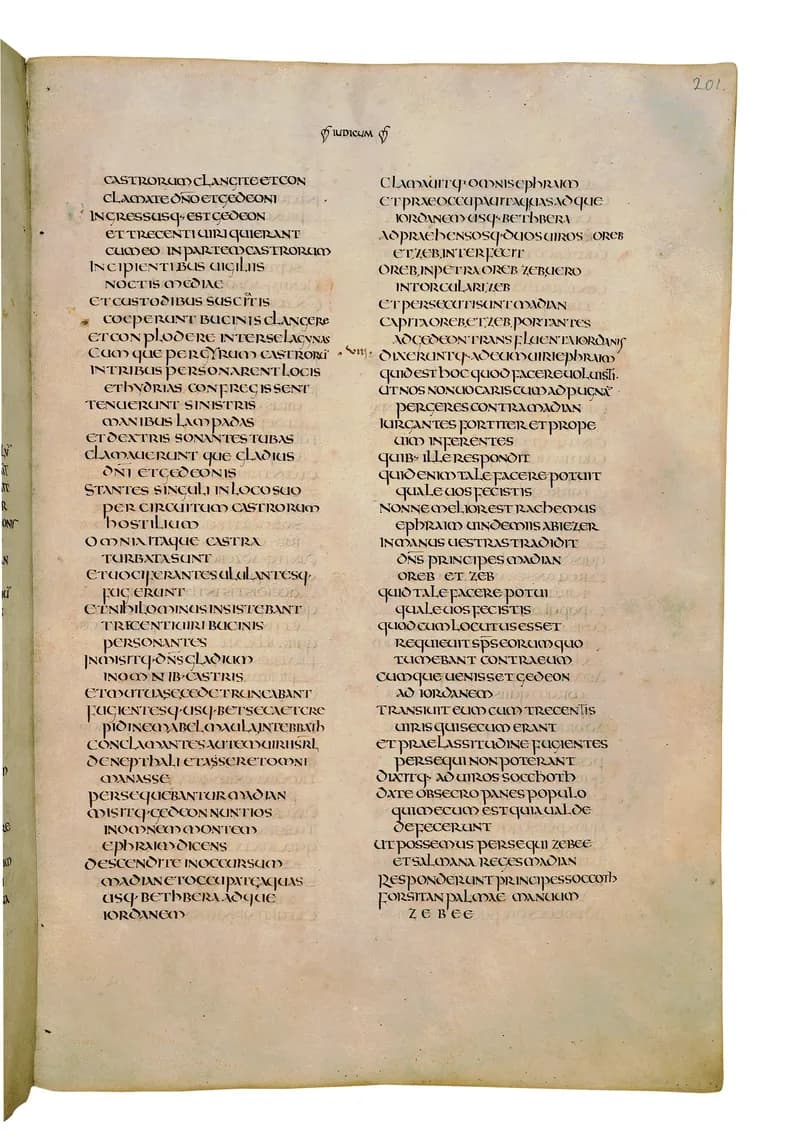 201
IUDICUM
CASTRORUM CLANGITE ET CON
CLAMATE DÑO ET GEDEONI
INGRESSUSQ· EST GEDEON
ET TRECENTI UIRI QUI ERANT
CUM EO IN PARTEM CASTRORUM
INCIPIENTIBUS UIGILIIS
NOCTIS MEDIAE
ET CUSTODIBUS SUSCITATIS
COEPERUNT BUCINIS CLANGERE
ET CONPLODERE INTER SE LAGYNAS
CUMQUE PER GYRUM CASTRORŪ
IN TRIBUS PERSONARENT LOCIS
ET HYDRIAS CONFREGISSENT
TENUERUNT SINISTRIS
MANIBUS LAMPADAS
ET DEXTRIS SONANTES TUBAS
CLAMAUERUNTQUE GLADIUS
DÑI ET GEDEONIS
STANTES SINGULI IN LOCO SUO
PER CIRCUITUM CASTRORUM
HOSTILIUM
OMNIA ITAQUE CASTRA
TURBATA SUNT
ET UOCIFERANTES ULULANTESQ·
FUGERUNT
ET NIHILOMINUS INSISTEBANT
TRECENTI UIRI BUCINIS
PERSONANTES
INMISITQ· DÑS GLADIUM
IN OMNIB· CASTRIS
ET MUTUA SE CEDE TRUNCABANT
FUGIENTESQ· USQ· BETHSECA ET CRE
PIDINEM ABELMAULA IN TEBBATH
CONCLAMANTES AUTEM UIRI ISRL
DE NEPTHALI ET ASSER ET OMNI
MANASSE
PERSEQUEBANTUR MADIAN
MISITQ· GEDEON NUNTIOS
IN OMNEM MONTEM
EPHRAIM DICENS
DESCENDITE IN OCCURSUM
MADIAN ET OCCUPATE AQUAS
USQ· BETHBERA ADQUE
IORDANEM
CLAMAUITQ· OMNIS EPHRAIM
ET PRAEOCCUPAUIT AQUAS ADQUE
IORDANEM USQ· BETHBERA
ADPRAEHENSOSQ· DUOS UIROS OREB
ET ZEB INTERFECIT
OREB IN PETRA OREB ZEB UERO
IN TORCULARI ZEB
ET PERSECUTI SUNT MADIAN
CAPITA OREB ET ZEB PORTANTES
AD GEDEON TRANS FLUENTA IORDANIS
UIII· DIXERUNTQ· AD EUM UIRI EPHRAIM
QUID EST HOC QUOD FACERE UOLUISTI·
UT NOS NON UOCARIS CUM AD PUGNĀ
PERGERES CONTRA MADIAN
IURGANTES FORTITER ET PROPE
UIM INFERENTES
QUIB· ILLE RESPONDIT
QUID ENIM TALE FACERE POTUIT
QUALE UOS FECISTIS
NONNE MELIOR EST RACHEMUS
EPHRAIM UINDEMIIS ABIEZER
IN MANUS UESTRAS TRADIDIT
DÑS PRINCIPES MADIAN
OREB ET ZEB
QUID TALE FACERE POTUI
QUALE UOS FECISTIS
QUOD CUM LOCUTUS ESSET
REQUIEUIT SPS EORUM QUO
TUMEBANT CONTRA EUM
CUMQUE UENISSET GEDEON
AD IORDANEM
TRANSIUIT EUM CUM TRECENTIS
UIRIS QUI SECUM ERANT
ET PRAE LASSITUDINE FUGIENTES
PERSEQUI NON POTERANT
DIXITQ· AD UIROS SOCCHOTH
DATE OBSECRO PANES POPULO
QUI MECUM EST QUIA UALDE
DEFECERUNT
UT POSSEMUS PERSEQUI ZEBEE
ET SALMANA REGES MADIAN
RESPONDERUNT PRINCIPES SOCCOTH
FORSITAN PALMAE MANUUM
ZEBEE